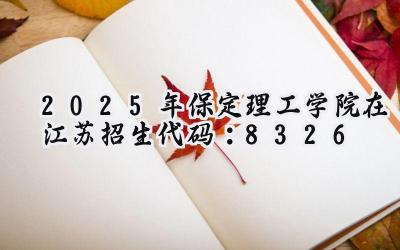 2025年保定理工学院在
江苏招生代码：8326